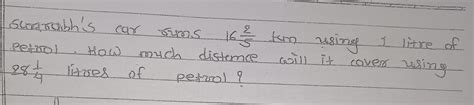 Saurabh's car runs 16 2/5 km using 1 litre of
petrol. How much distance will it cover using
28 1/4 litres of petrol?